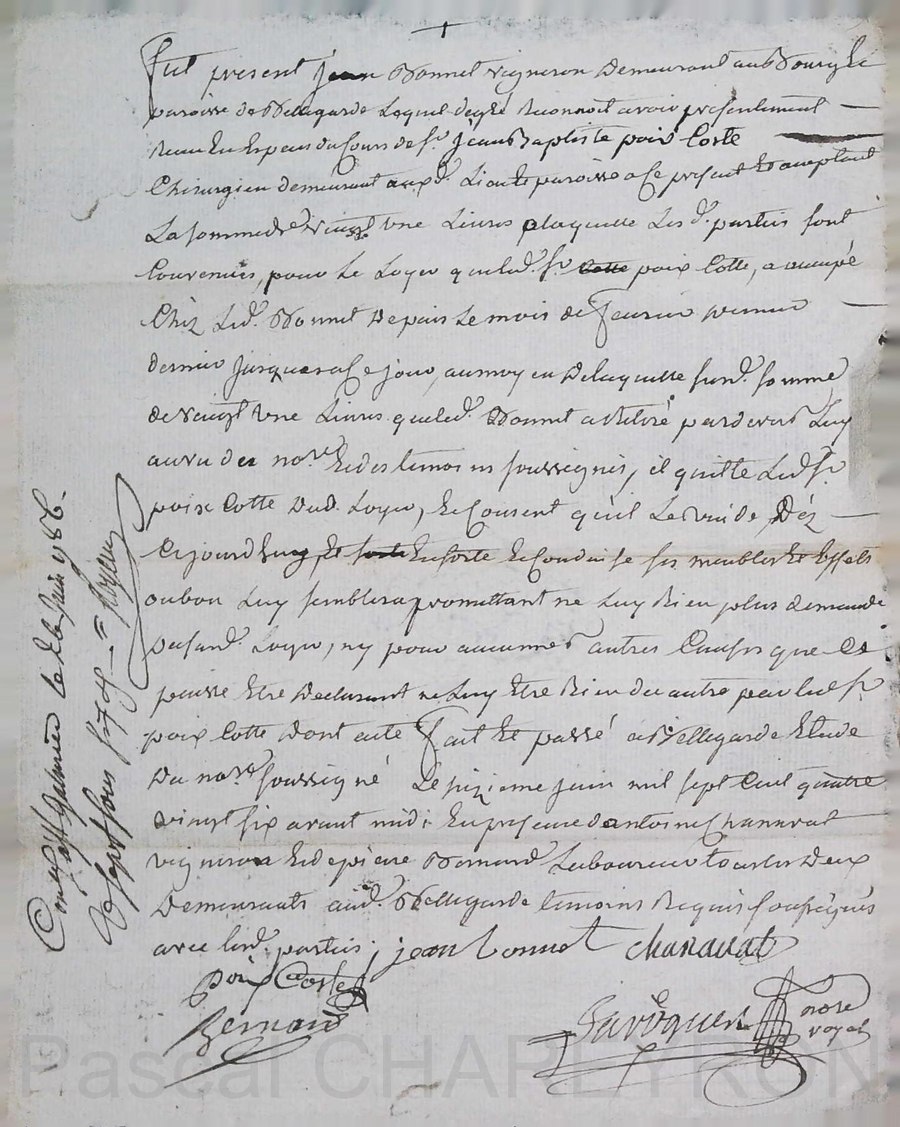 Fut present jean Bonnet vigneron demeurant au Bourg et
paroisse de Bellegarde Lequel de gré Reconnoit avoir presentement
Receu En Espece du Cours de Sr. jean Baptiste poix Coste
Chirurgien demeurant auxd. Lieu et paroisse a Ce present Et acceptant
La somme de vaingt une Livres a laquelle Lesd. parties sont
Convenues, pour Le Loyer que led. Sr. Cotte poix Cotte, a occupé
Chéz Led. Bonnet Depuis Le mois de feuvrier
dernier jusques a Ce jour, au moyen De laquelle susd. somme
de vaingt une Livres que led. Bonnet a Retiré par devers Luy
au vu du nore. Et des temoins soussignés, il quitte Led. Sr.
poix Cotte Dud. Loyer, Et Consent qu'il Le vuide Déz
Cejourdhuy Et sorte En sorte Et Conduise ses meubles Et Effets
ou bon Luy semblera promettant ne Luy Rien plus demander
Dususd. Loyer, ny pour aucunes autres Causes que Ce
puisse Etre Declarant ne Luy Etre Rien du autre par led. Sr.
poix Cotte Dont acte Fait Et passé a Bellegarde Etude
Du nore. soussigné Le sizieme juin mil sept Cent quatre
vingt six avant midi En presence d'antoine Chanavat
vigneron Et de pierre Bernard Laboureur tous les Deux
Demeurants aud. Bellegarde temoins Requis soussignés
avec lesd. parties; jean bonnet Chanavat
poix Coste
Bernard
nore
royal
Conlé
juin 1786
Reçu sept sous
Pascal CHAPLYRON